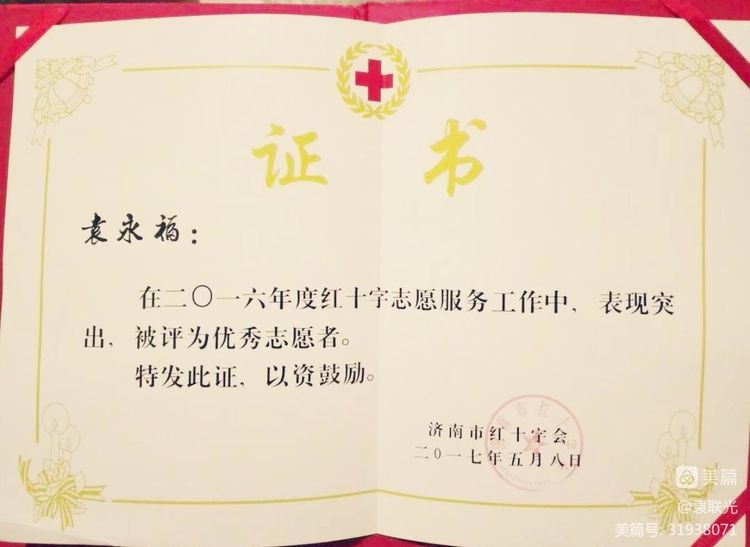 证 书
袁永福：
在二〇一六年度红十字志愿服务工作中，表现突
出，被评为优秀志愿者。
特发此证，以资鼓励。
济南市红十字会
二〇一七年五月八日
美篇
@袁联光
美篇号: 31938071